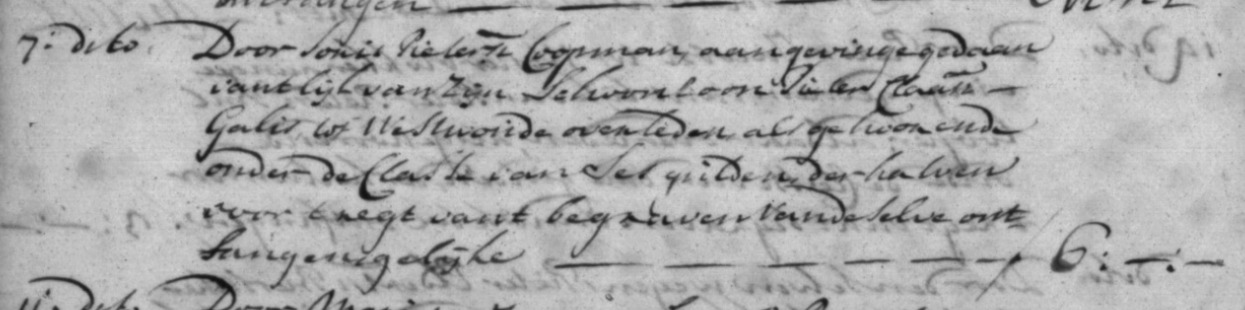 7: dito Door Jonis Pieterse Coopman, aangevinge gedaan
vant lijk van Zijn Schoonsoon Pieter Claasz
Galis tot Westwoude overleden als gehoorende
onder de Classe van Ses gulden, derhalven
voor t regt vant begraven vande selve ont-
fangen gelijke — — — — — 6:—:—
11: dito Door